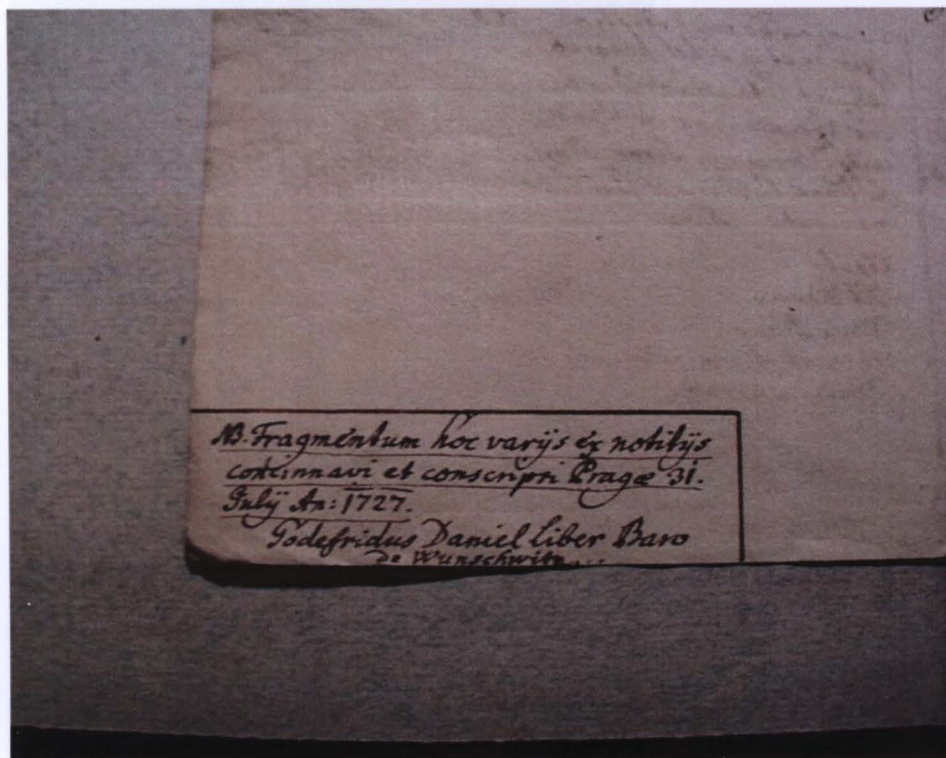 NB. Fragmentum hoc varijs ex notitijs
concinnavi et conscripsi Pragæ 31.
Julij An: 1727.
Godefridus Daniel Liber Baro
de Wunschwitz